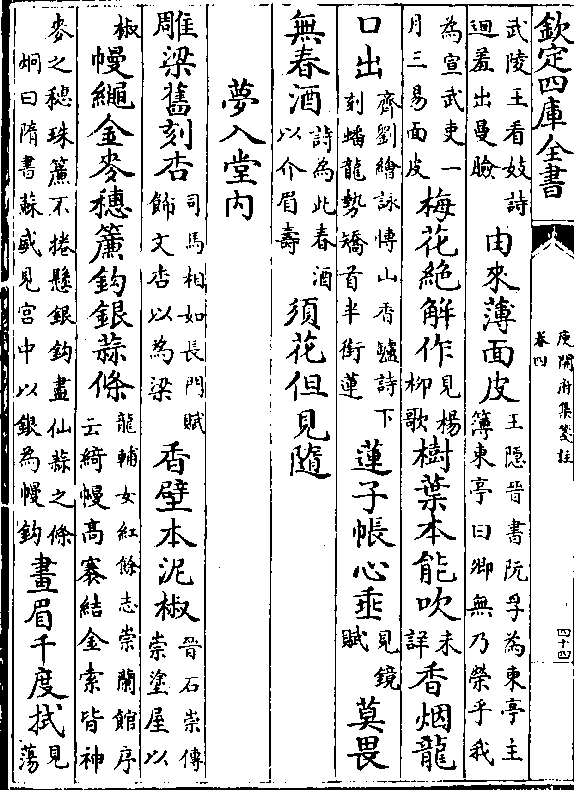 欽定四庫全書
庾開府集箋註
卷四
四十四
武陵王看妓詩
迴羞出曼臉
由來薄面皮
王隱晉書阮孚為東亭主
簿東亭曰卿無乃榮乎我
為宣武吏一
月三易面皮
梅花絶解作
見楊
柳歌
樹葉本能吹
未
詳
香烟龍
口出
齊劉繪詠博山香鑪詩下
刻蟠龍勢矯首半銜蓮
蓮子帳心垂
見鏡
賦
莫畏
無春酒
詩為此春酒
以介眉壽
須花但見隨
夢入堂内
雕梁舊刻杏
司馬相如長門賦
飾文杏以為梁
香壁本泥椒
晉石崇傳
崇塗屋以
椒
幔繩金麥穗簾鈎銀蒜條
龍輔女紅餘志崇蘭館序
云綺幔高褰結金索皆神
麥之穗珠簾不捲懸銀鈎盡仙蒜之條
炯曰隋書蘇威見宫中以銀為幔鈎
畫眉千度拭
見
蕩